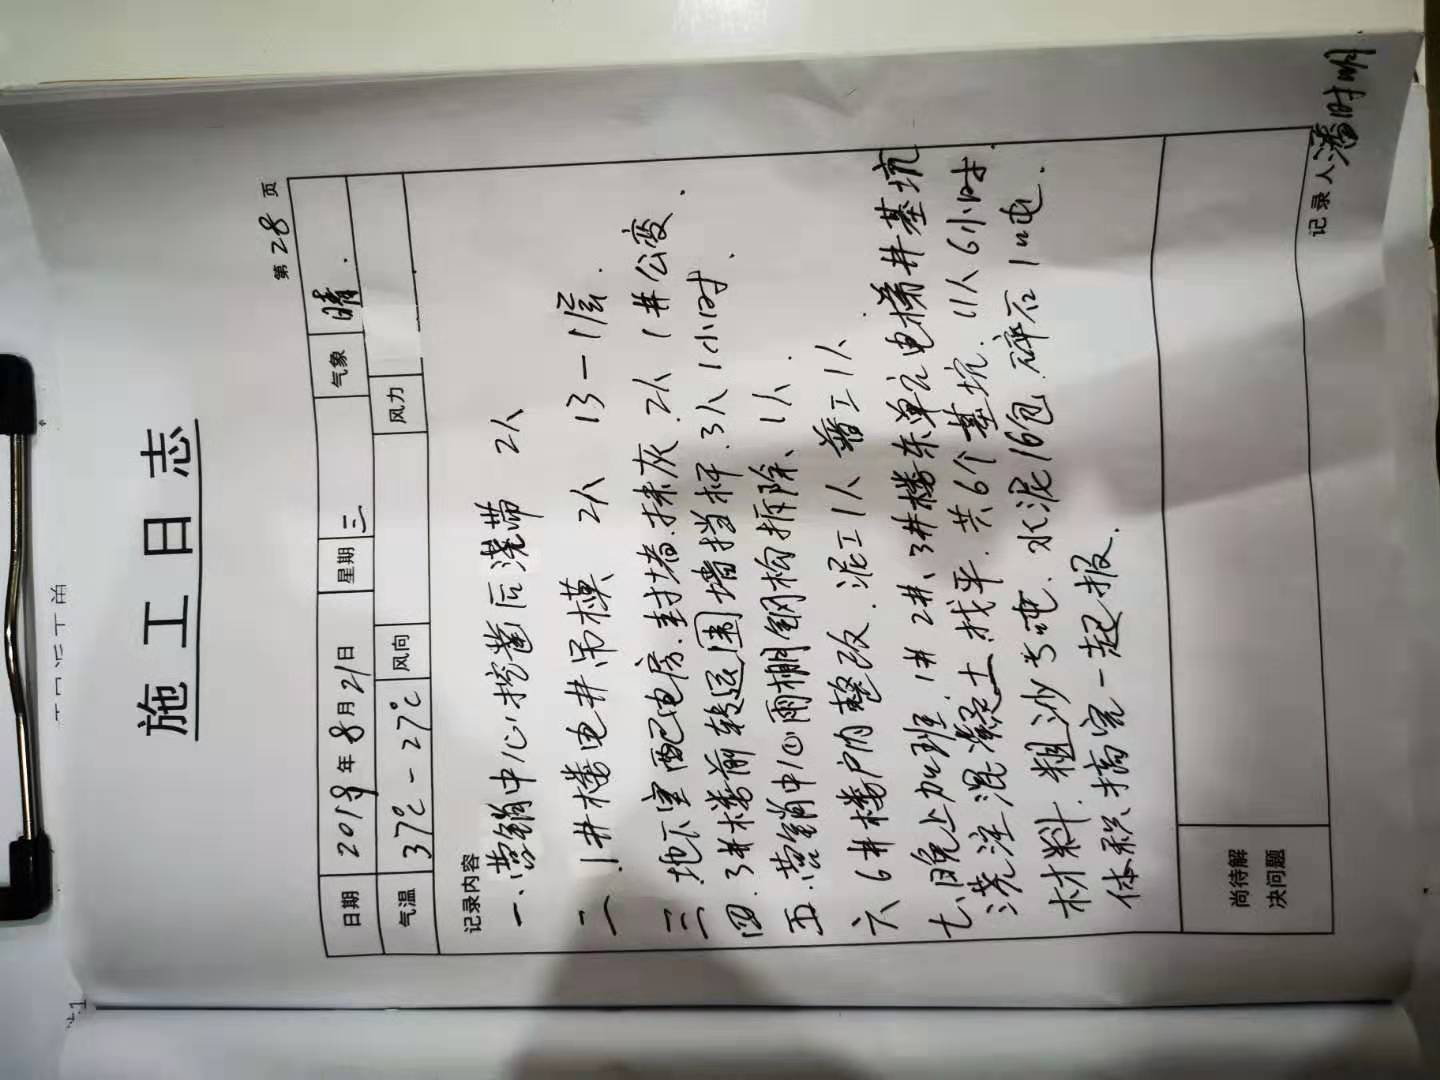 施工日志
第 28 页
日期 2019年8月21日 星期 三 气象 晴.
气温 37℃-27℃ 风向 风力
记录内容
一、营销中心挖凿后浇带 2人
二.1#楼电井吊模 2人 13-1层.
三.地下室配电房.封堵.抹灰.2人 1#公变.
四.3#楼前转运围墙挡杆.3人1小时.
五.营销中心雨棚钢构拆除、1人.
六 6#楼户内整改.泥工1人 普工1人
七、晚上加班.1# 2#、3#楼东单元电梯井基坑
浇注混凝土找平.共6个基坑.11人6小时.
材料.粗沙5吨.水泥16包.碎石10吨.
体积搞完一起报.
尚待解
决问题
记录人潘时明